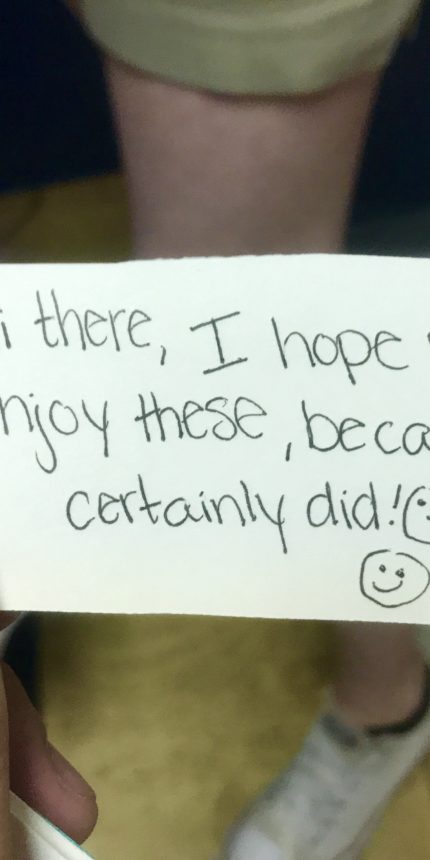 i there, I hope
njoy these, beca
certainly did!